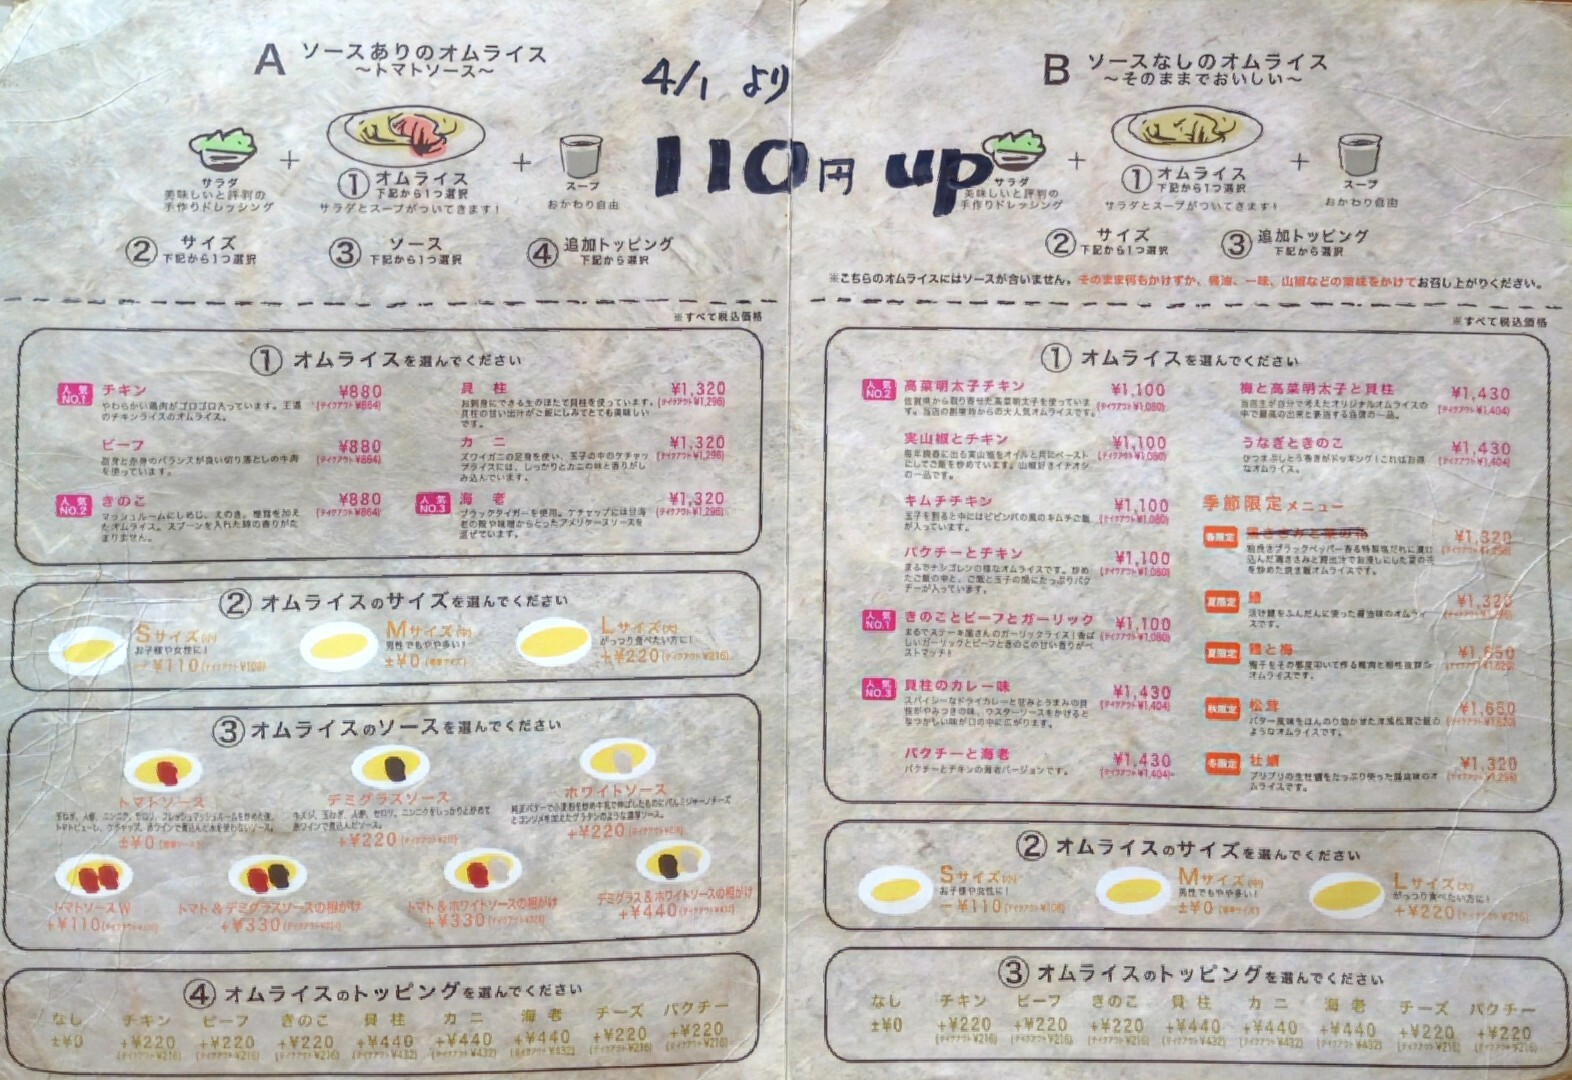 4/1 より
110円 up
A ソースありのオムライス
～トマトソース～
サラダ
美味しいと評判の
手作りドレッシング
+
① オムライス
下記から1つ選択
サラダとスープがついてきます!
+
スープ
おかわり自由
② サイズ
下記から1つ選択
③ ソース
下記から1つ選択
④ 追加トッピング
下記から選択
※すべて税込価格
① オムライスを選んでください
人気NO.1 チキン ¥880
(テイクアウト¥864)
やわらかい鶏肉がゴロゴロ入っています。王道
のチキンライスのオムライス。
ビーフ ¥880
(テイクアウト¥864)
脂身と赤身のバランスが良い切り落としの牛肉
を使っています。
人気NO.2 きのこ ¥880
(テイクアウト¥864)
マッシュルームにしめじ、えのき、椎茸を加え
たオムライス。スプーンを入れた時の香りがた
まりません。
貝 柱 ¥1,320
(テイクアウト¥1,296)
お刺身にできる生のほたて貝柱を使っています。
貝柱の甘い出汁がご飯にしみてとても美味しい
です。
カ ニ ¥1,320
(テイクアウト¥1,296)
ズワイガニの足身を使い、玉子の中のケチャッ
プライスには、しっかりとカニの味と香りがし
み込んでいます。
人気NO.3 海 老 ¥1,320
(テイクアウト¥1,296)
ブラックタイガーを使用。ケチャップには甘海
老の殻や味噌からとったアメリケーヌソースを
混ぜています。
② オムライスのサイズを選んでください
Sサイズ(小)
お子様や女性に!
−¥110(テイクアウト¥108)
Mサイズ(中)
男性でもやや多い!
±¥0(標準サイズ)
Lサイズ(大)
がっつり食べたい方に!
+¥220(テイクアウト¥216)
③ オムライスのソースを選んでください
トマトソース
玉ねぎ、人参、ニンニク、セロリ、フレッシュマッシュルームを炒めた後、
トマトピューレ、ケチャップ、赤ワインで煮込んだ水を使わないソース。
±¥0(標準ソース)
デミグラスソース
牛スジ、玉ねぎ、人参、セロリ、ニンニクをしっかりと炒めて
赤ワインで煮込んだソース。
+¥220(テイクアウト¥216)
ホワイトソース
純正バターで小麦粉を炒め牛乳で伸ばしたものにパルミジャーノチーズ
とコンソメを加えたグラタンのような濃厚ソース。
+¥220(テイクアウト¥216)
トマトソースW
+¥110(テイクアウト¥108)
トマト&デミグラスソースの相がけ
+¥330(テイクアウト¥324)
トマト&ホワイトソースの相がけ
+¥330(テイクアウト¥324)
デミグラス&ホワイトソースの相がけ
+¥440(テイクアウト¥432)
④ オムライスのトッピングを選んでください
なし チキン ビーフ きのこ 貝 柱 カ ニ 海 老 チーズ パクチー
±¥0 +¥220 +¥220 +¥220 +¥440 +¥440 +¥440 +¥220 +¥220
(テイクアウト¥216) (テイクアウト¥216) (テイクアウト¥216) (テイクアウト¥432) (テイクアウト¥432) (テイクアウト¥432) (テイクアウト¥216) (テイクアウト¥216)
B ソースなしのオムライス
～そのままでおいしい～
サラダ
美味しいと評判の
手作りドレッシング
+
① オムライス
下記から1つ選択
サラダとスープがついてきます!
+
スープ
おかわり自由
② サイズ
下記から1つ選択
③ 追加トッピング
下記から選択
※こちらのオムライスにはソースが合いません。そのまま何もかけずか、醤油、一味、山椒などの薬味をかけてお召し上がりください。
※すべて税込価格
① オムライスを選んでください
人気NO.2 高菜明太子チキン ¥1,100
(テイクアウト¥1,080)
佐賀県から取り寄せた高菜明太子を使っていま
す。当店の創業時からの大人気オムライスです。
実山椒とチキン ¥1,100
(テイクアウト¥1,080)
毎年晩春に出る実山椒をオイルと共にペースト
にしてご飯を炒めています。山椒好きイチオシ
の一品です。
キムチチキン ¥1,100
(テイクアウト¥1,080)
玉子を割ると中にはビビンバの風のキムチご飯
が入っています。
パクチーとチキン ¥1,100
(テイクアウト¥1,080)
まるでナシゴレンの様なオムライスです。炒め
たご飯の中と、ご飯と玉子の間にたっぷりパク
チーが入っています。
人気NO.1 きのことビーフとガーリック ¥1,100
(テイクアウト¥1,080)
まるでステーキ屋さんのガーリックライス!香ば
しいガーリックとビーフときのこの甘い香りがベ
ストマッチ!
人気NO.3 貝柱のカレー味 ¥1,430
(テイクアウト¥1,404)
スパイシーなドライカレーと甘みとうまみの貝
柱がやみつきの味。ウスターソースをかけると
なつかしい味が口の中に広がります。
パクチーと海老 ¥1,430
(テイクアウト¥1,404)
パクチーとチキンの海老バージョンです。
梅と高菜明太子と貝柱 ¥1,430
(テイクアウト¥1,404)
当店主が自分で考えたオリジナルオムライスの
中で最高の出来と豪語する自信の一品。
うなぎときのこ ¥1,430
(テイクアウト¥1,404)
ひつまぶしとう巻きがドッキング!これはお得
なオムライス。
季節限定メニュー
春限定 鶏ささみと菜の花 ¥1,320
(テイクアウト¥1,296)
粗挽きブラックペッパー香る特製塩だれに漬け
込んだ鶏ささみと鰹出汁でお浸しにした菜の花
を炒めた焼き飯オムライスです。
夏限定 鱧 ¥1,320
(テイクアウト¥1,296)
淡け鱧をふんだんに使った醤油味のオムライ
スです。
夏限定 鱧と梅 ¥1,650
(テイクアウト¥1,620)
梅干をその都度叩いて作る梅肉と相性抜群な
オムライスです。
秋限定 松茸 ¥1,650
(テイクアウト¥1,620)
バター風味をほんのり効かせた洋風松茸ご飯の
ようなオムライスです。
冬限定 牡蠣 ¥1,320
(テイクアウト¥1,296)
プリプリの生牡蠣をたっぷり使った醤油味のオ
ムライスです。
② オムライスのサイズを選んでください
Sサイズ(小)
お子様や女性に!
−¥110(テイクアウト¥108)
Mサイズ(中)
男性でもやや多い!
±¥0(標準サイズ)
Lサイズ(大)
がっつり食べたい方に!
+¥220(テイクアウト¥216)
③ オムライスのトッピングを選んでください
なし チキン ビーフ きのこ 貝 柱 カ ニ 海 老 チーズ パクチー
±¥0 +¥220 +¥220 +¥220 +¥440 +¥440 +¥440 +¥220 +¥220
(テイクアウト¥216) (テイクアウト¥216) (テイクアウト¥216) (テイクアウト¥432) (テイクアウト¥432) (テイクアウト¥432) (テイクアウト¥216) (テイクアウト¥216)